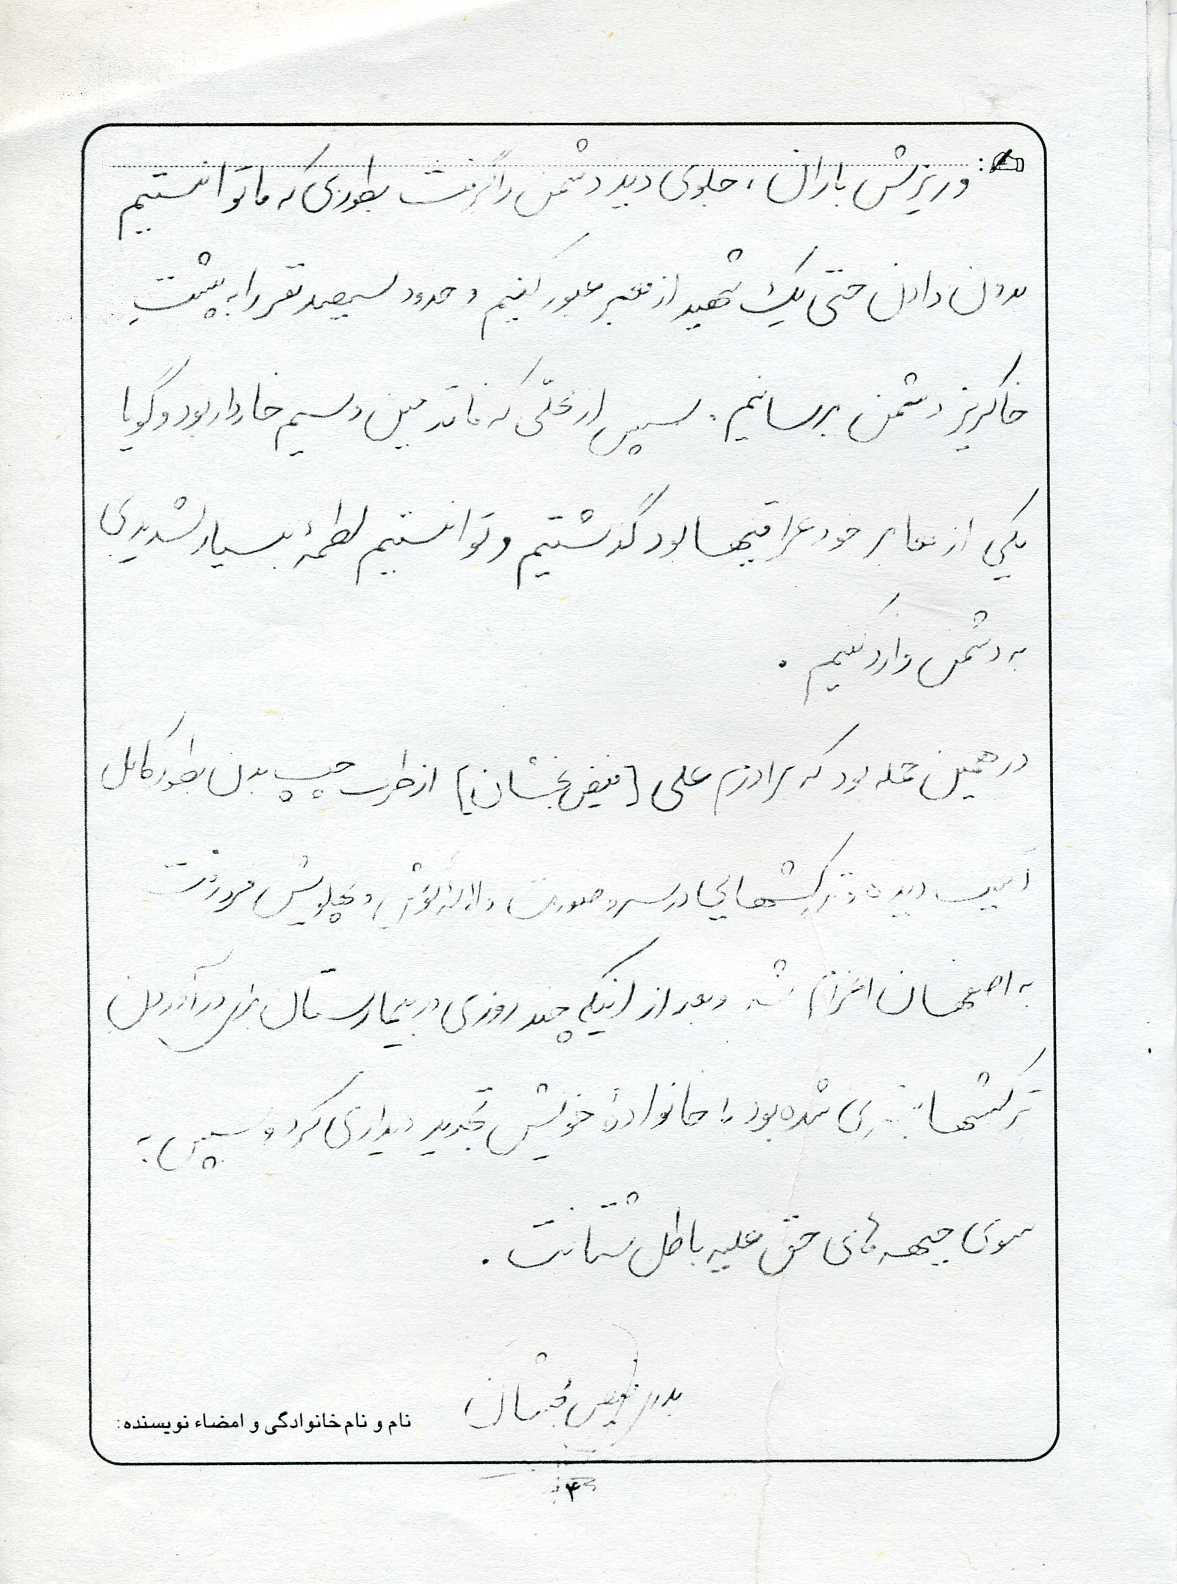 و ریزش باران، جلوی دید دشمن را گرفت بطوری که ما توانستیم
بدون دادن حتی یک شهید از معبر عبور کنیم و حدود سیصد نفر را به پشت
خاکریز دشمن برسانیم. سپس از محلّی که فاقد مین و سیم خاردار بود و گویا
یکی از معابر خود عراقیها بود گذشتیم و توانستیم لطمهٔ بسیار شدیدی
به دشمن وارد کنیم.
در همین حمله بود که برادرم علی [فیض بخشان] از طرف چپ بدن بطور کامل
آسیب دیده و ترکشهایی در سر و صورت و لالهٔ گوش و پهلویش فرو رفت
به اصفهان اعزام شد و بعد از اینکه چند روزی در بیمارستان برای درآوردن
ترکشها بستری شده بود با خانوادهٔ خویش تجدید دیداری کرد و سپس به
سوی جبهه های حق علیه باطل شتافت.
فیض بخشان
نام و نام خانوادگی و امضاء نویسنده:
۴